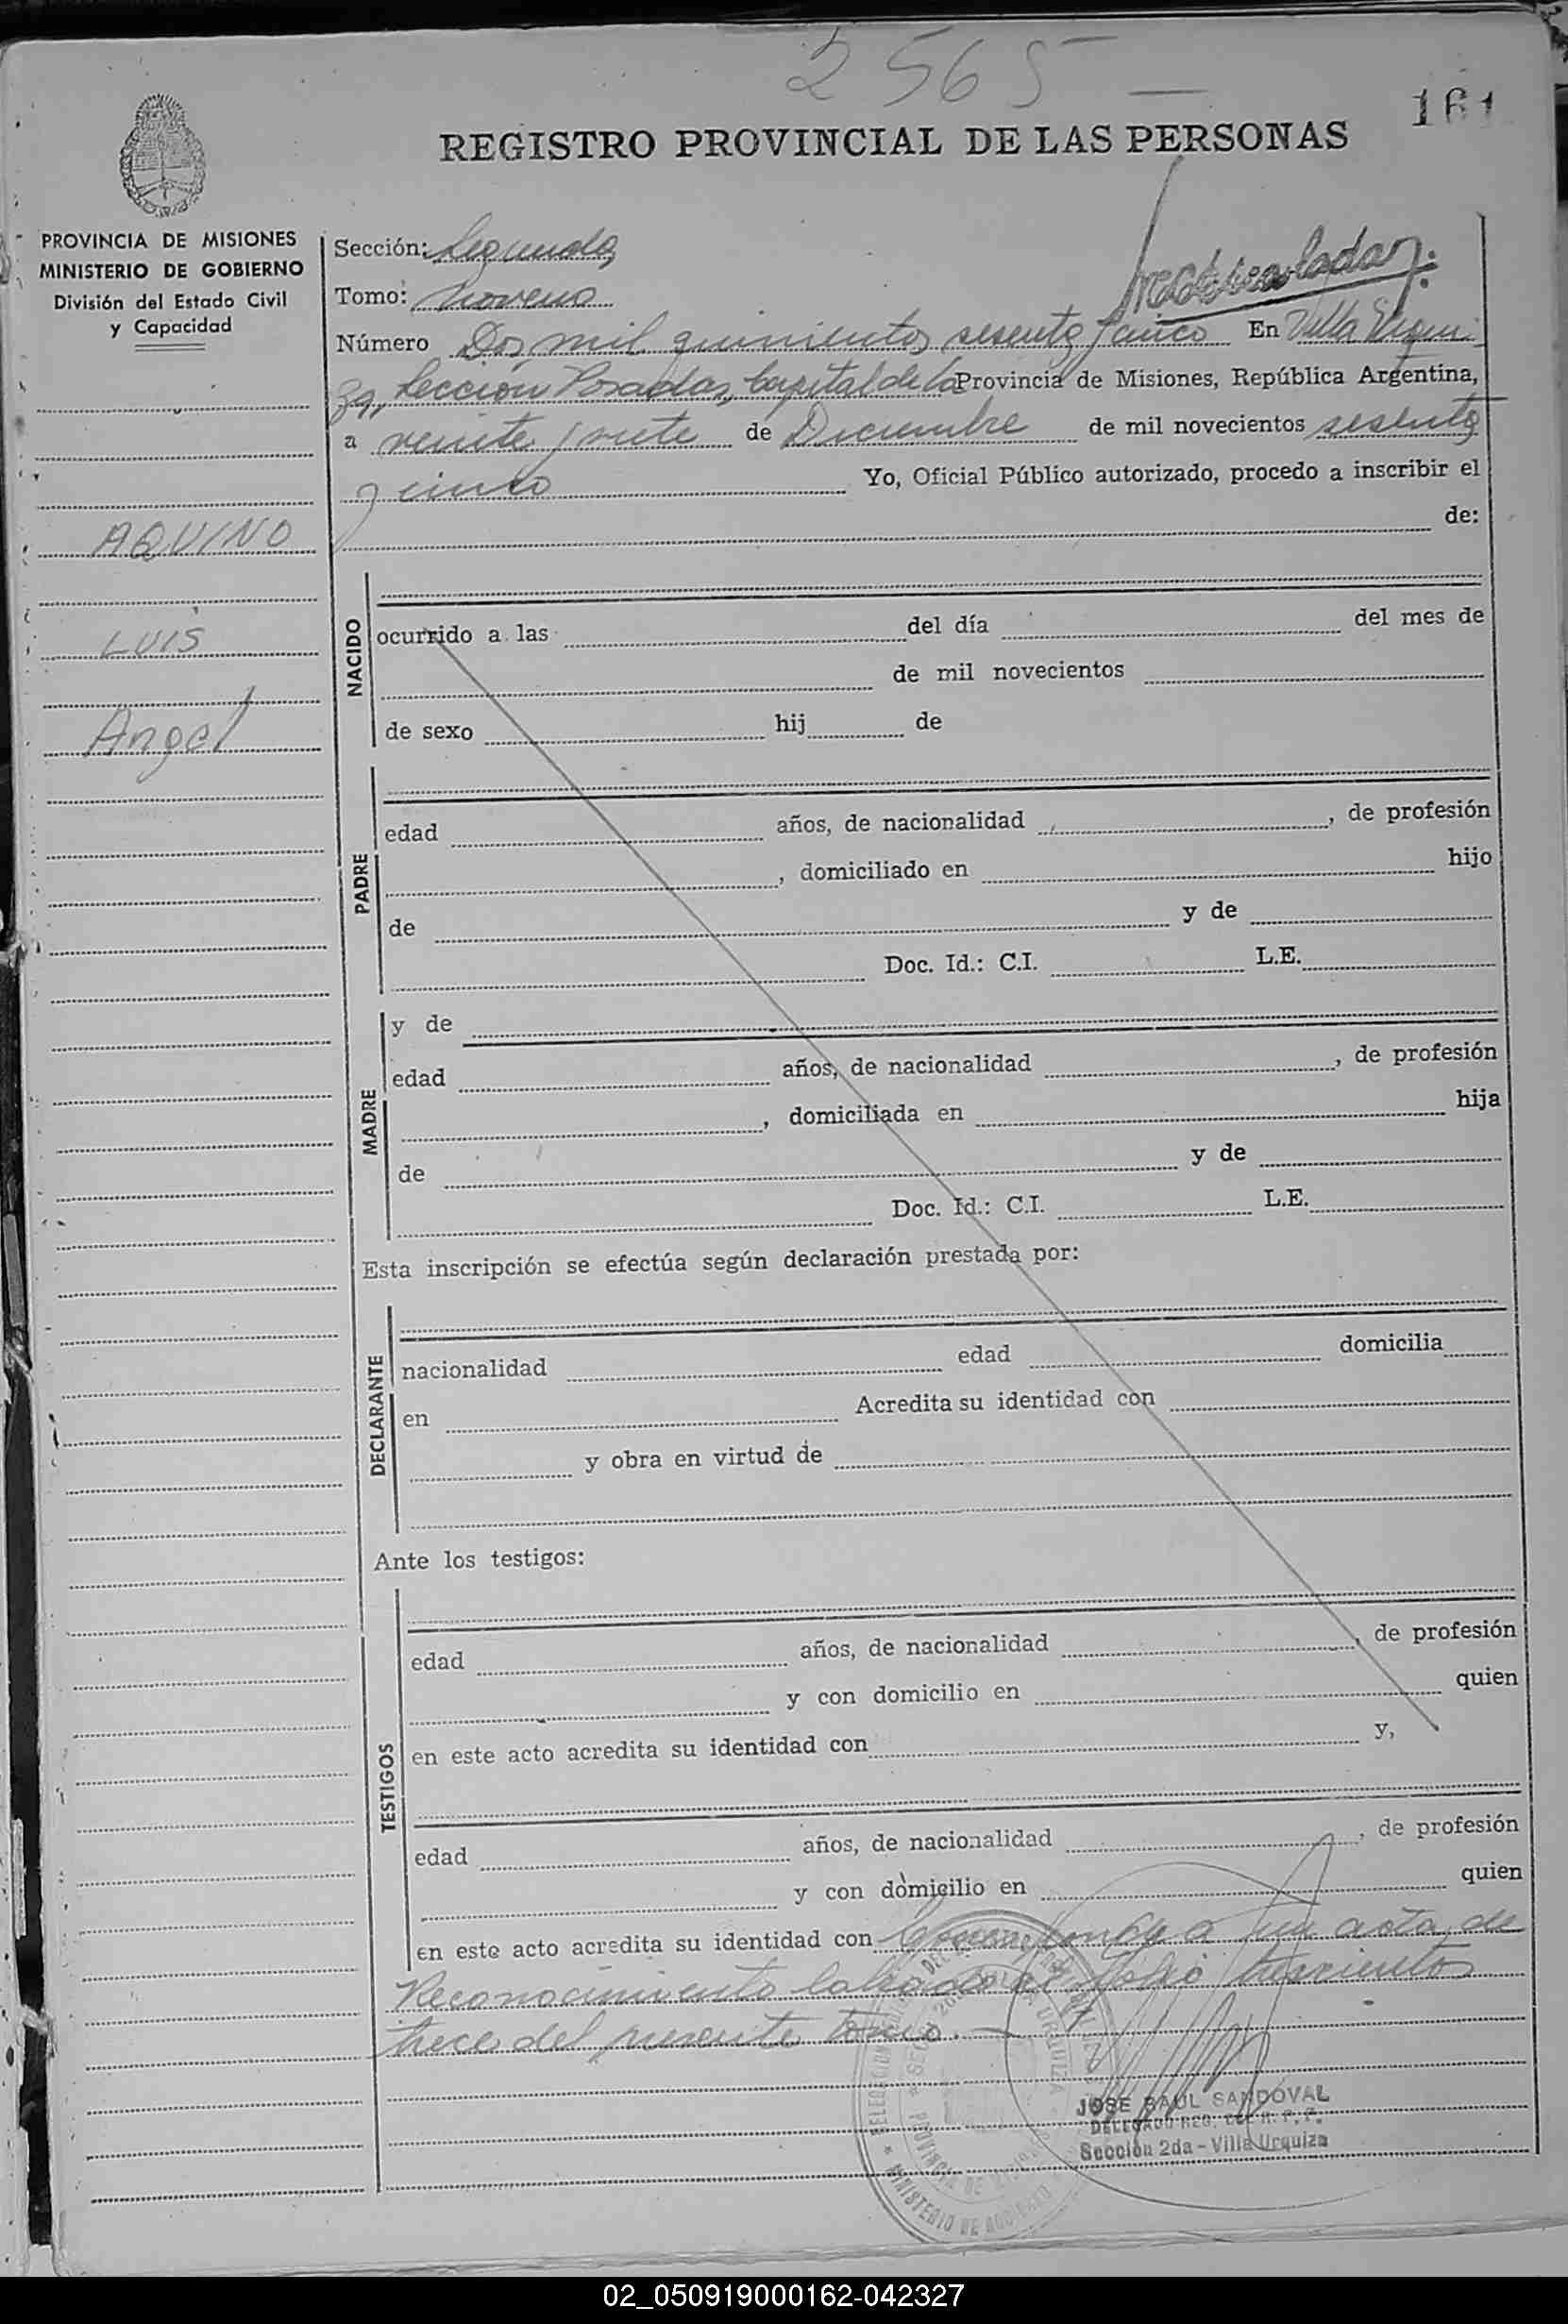 2565 —
161
REGISTRO PROVINCIAL DE LAS PERSONAS
PROVINCIA DE MISIONES
MINISTERIO DE GOBIERNO
División del Estado Civil
y Capacidad
AQUINO
LUIS
Angel
Sección: Segunda
Tomo: Noveno
Número Dos mil quinientos sesenta y cinco En Villa Urqui
za, Sección Posadas, Capital de la Provincia de Misiones, República Argentina,
a veinte y siete de Diciembre de mil novecientos sesenta
y cinco Yo, Oficial Público autorizado, procedo a inscribir el
de:
NACIDO
ocurrido a las del día del mes de
de mil novecientos
de sexo hij de
PADRE
edad años, de nacionalidad , de profesión
, domiciliado en hijo
de y de
Doc. Id.: C.I. L.E.
MADRE
y de
edad años, de nacionalidad , de profesión
, domiciliada en hija
de y de
Doc. Id.: C.I. L.E.
Esta inscripción se efectúa según declaración prestada por:
DECLARANTE
nacionalidad edad domicilia
en Acredita su identidad con
y obra en virtud de
Ante los testigos:
TESTIGOS
edad años, de nacionalidad , de profesión
y con domicilio en quien
en este acto acredita su identidad con y,
edad años, de nacionalidad , de profesión
y con domicilio en quien
en este acto acredita su identidad con Corresponde a un acta de
Reconocimiento labrado al folio trescientos
trece del presente tomo. —
JOSE RAUL SANDOVAL
DELEGADO REG.
Sección 2da - Villa Urquiza
02_050919000162-042327